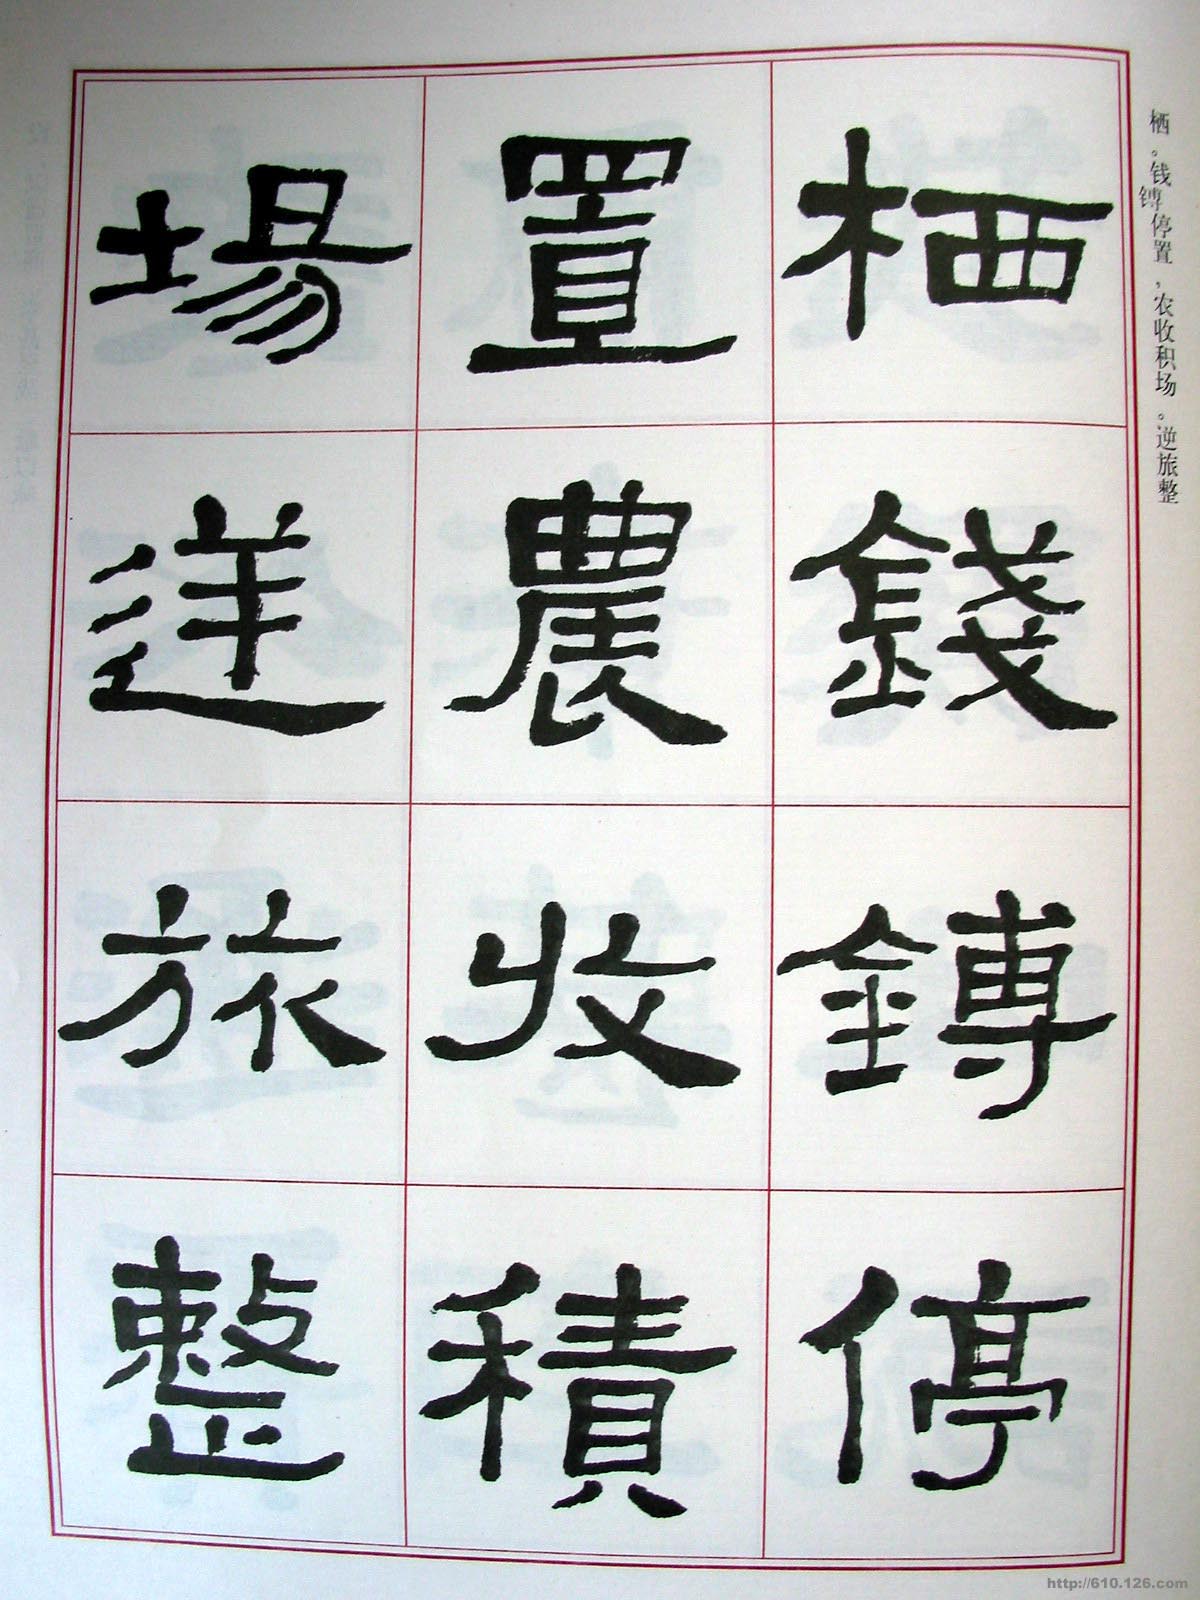 栖錢鎛停
置農收積
場逆旅整
栖。钱镈停置,农收积场。逆旅整
http://610.126.com